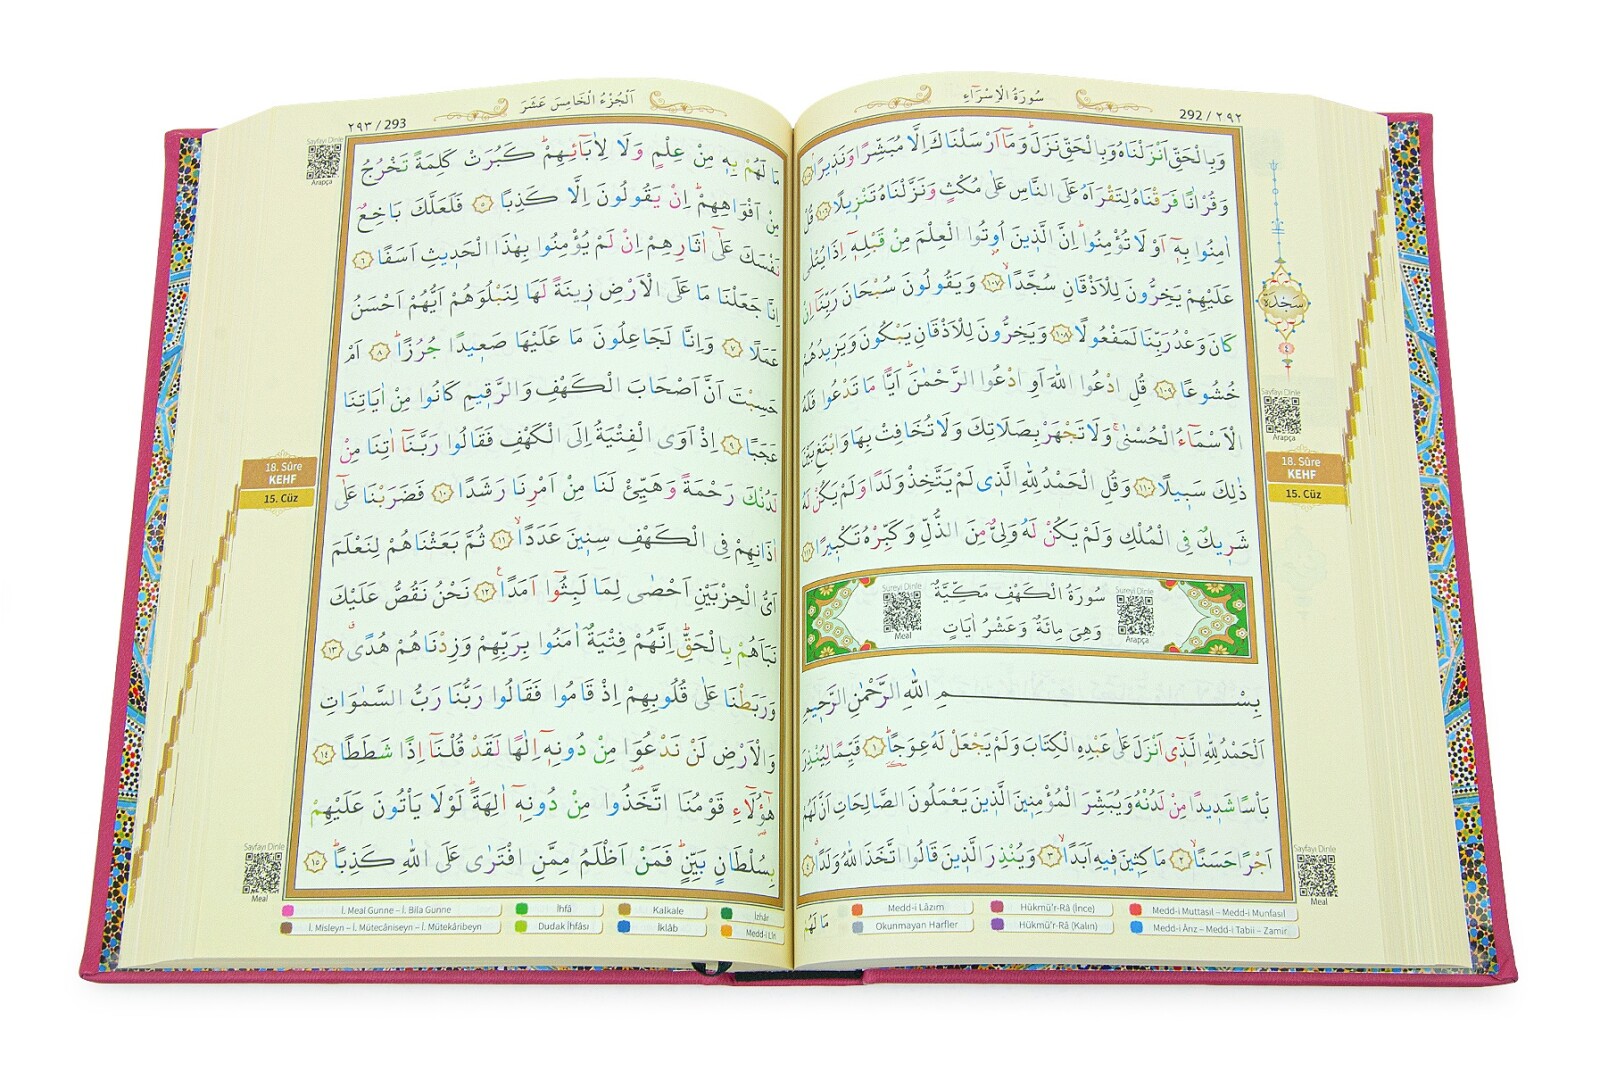 سُورَةُ الْاِسْرَاءِ
292 / ٢٩٢
وَبِالْحَقِّ اَنْزَلْنَاهُ وَبِالْحَقِّ نَزَلَۜ وَمَٓا اَرْسَلْنَاكَ اِلَّا مُبَشِّرًا وَنَذ۪يرًاۢ ﴿١٠٥﴾
وَقُرْاٰنًا فَرَقْنَاهُ لِتَقْرَاَهُ عَلَى النَّاسِ عَلٰى مُكْثٍ وَنَزَّلْنَاهُ تَنْز۪يلًا ﴿١٠٦﴾ قُلْ
اٰمِنُوا بِه۪ٓ اَوْ لَا تُؤْمِنُواۜ اِنَّ الَّذ۪ينَ اُو۫تُوا الْعِلْمَ مِنْ قَبْلِه۪ٓ اِذَا يُتْلٰى
عَلَيْهِمْ يَخِرُّونَ لِلْاَذْقَانِ سُجَّدًاۙ ﴿١٠٧﴾ وَيَقُولُونَ سُبْحَانَ رَبِّنَٓا اِنْ
كَانَ وَعْدُ رَبِّنَا لَمَفْعُولًا ﴿١٠٨﴾ وَيَخِرُّونَ لِلْاَذْقَانِ يَبْكُونَ وَيَز۪يدُهُمْ
خُشُوعًا ﴿١٠٩﴾ قُلِ ادْعُوا اللّٰهَ اَوِ ادْعُوا الرَّحْمٰنَۜ اَيًّا مَا تَدْعُوا فَلَهُ
الْاَسْمَٓاءُ الْحُسْنٰىۚ وَلَا تَجْهَرْ بِصَلَاتِكَ وَلَا تُخَافِتْ بِهَا وَابْتَغِ بَيْنَ
ذٰلِكَ سَب۪يلًا ﴿١١٠﴾ وَقُلِ الْحَمْدُ لِلّٰهِ الَّذ۪ي لَمْ يَتَّخِذْ وَلَدًا وَلَمْ يَكُنْ لَهُ
شَر۪يكٌ فِي الْمُلْكِ وَلَمْ يَكُنْ لَهُ وَلِيٌّ مِنَ الذُّلِّ وَكَبِّرْهُ تَكْب۪يرًا ﴿١١١﴾
سُورَةُ الْكَهْفِ مَكِّيَّةٌ
وَهِيَ مِائَةٌ وَعَشْرُ اٰيَاتٍ
Sureyi Dinle
Arapça
Sureyi Dinle
Meal
بِسْمِ اللّٰهِ الرَّحْمٰنِ الرَّح۪يمِ
اَلْحَمْدُ لِلّٰهِ الَّذ۪ٓي اَنْزَلَ عَلٰى عَبْدِهِ الْكِتَابَ وَلَمْ يَجْعَلْ لَهُ عِوَجًاۜ ﴿١﴾ قَيِّمًا لِيُنْذِرَ
بَاْسًا شَد۪يدًا مِنْ لَدُنْهُ وَيُبَشِّرَ الْمُؤْمِن۪ينَ الَّذ۪ينَ يَعْمَلُونَ الصَّالِحَاتِ اَنَّ لَهُمْ
اَجْرًا حَسَنًاۙ ﴿٢﴾ مَاكِث۪ينَ ف۪يهِ اَبَدًاۙ ﴿٣﴾ وَيُنْذِرَ الَّذ۪ينَ قَالُوا اتَّخَذَ اللّٰهُ وَلَدًاۗ ﴿٤﴾
مَا لَهُمْ
سَجْدَة
٤
Sayfayı Dinle
Arapça
18. Sûre
KEHF
15. Cüz
Sayfayı Dinle
Meal
Medd-i Lâzım
Hükmü'r-Râ (İnce)
Medd-i Muttasıl – Medd-i Munfasıl
Okunmayan Harfler
Hükmü'r-Râ (Kalın)
Medd-i Ârız – Medd-i Tabii – Zamir
اَلْجُزْءُ الْخَامِسَ عَشَرَ
٢٩٣ / 293
مَا لَهُمْ بِه۪ مِنْ عِلْمٍ وَلَا لِاٰبَٓائِهِمْۜ كَبُرَتْ كَلِمَةً تَخْرُجُ
مِنْ اَفْوَاهِهِمْۜ اِنْ يَقُولُونَ اِلَّا كَذِبًا ﴿٥﴾ فَلَعَلَّكَ بَاخِعٌ
نَفْسَكَ عَلٰٓى اٰثَارِهِمْ اِنْ لَمْ يُؤْمِنُوا بِهٰذَا الْحَد۪يثِ اَسَفًا ﴿٦﴾
اِنَّا جَعَلْنَا مَا عَلَى الْاَرْضِ ز۪ينَةً لَهَا لِنَبْلُوَهُمْ اَيُّهُمْ اَحْسَنُ
عَمَلًا ﴿٧﴾ وَاِنَّا لَجَاعِلُونَ مَا عَلَيْهَا صَع۪يدًا جُرُزًاۜ ﴿٨﴾ اَمْ
حَسِبْتَ اَنَّ اَصْحَابَ الْكَهْفِ وَالرَّق۪يمِ كَانُوا مِنْ اٰيَاتِنَا
عَجَبًا ﴿٩﴾ اِذْ اَوَى الْفِتْيَةُ اِلَى الْكَهْفِ فَقَالُوا رَبَّنَٓا اٰتِنَا مِنْ
لَدُنْكَ رَحْمَةً وَهَيِّئْ لَنَا مِنْ اَمْرِنَا رَشَدًا ﴿١٠﴾ فَضَرَبْنَا عَلٰٓى
اٰذَانِهِمْ فِي الْكَهْفِ سِن۪ينَ عَدَدًاۙ ﴿١١﴾ ثُمَّ بَعَثْنَاهُمْ لِنَعْلَمَ
اَيُّ الْحِزْبَيْنِ اَحْصٰى لِمَا لَبِثُٓوا اَمَدًا۟ ﴿١٢﴾ نَحْنُ نَقُصُّ عَلَيْكَ
نَبَاَهُمْ بِالْحَقِّۜ اِنَّهُمْ فِتْيَةٌ اٰمَنُوا بِرَبِّهِمْ وَزِدْنَاهُمْ هُدًىۗ ﴿١٣﴾
وَرَبَطْنَا عَلٰى قُلُوبِهِمْ اِذْ قَامُوا فَقَالُوا رَبُّنَا رَبُّ السَّمٰوَاتِ
وَالْاَرْضِ لَنْ نَدْعُوَ۬ا مِنْ دُونِه۪ٓ اِلٰهًا لَقَدْ قُلْنَٓا اِذًا شَطَطًا ﴿١٤﴾
هٰٓؤُ۬لَٓاءِ قَوْمُنَا اتَّخَذُوا مِنْ دُونِه۪ٓ اٰلِهَةًۜ لَوْلَا يَاْتُونَ عَلَيْهِمْ
بِسُلْطَانٍ بَيِّنٍۜ فَمَنْ اَظْلَمُ مِمَّنِ افْتَرٰى عَلَى اللّٰهِ كَذِبًاۜ ﴿١٥﴾
Sayfayı Dinle
Arapça
18. Sûre
KEHF
15. Cüz
Sayfayı Dinle
Meal
İ. Meal Gunne – İ. Bila Gunne
İhfâ
Kalkale
İzhâr
İ. Misleyn – İ. Mütecâniseyn – İ. Mütekâribeyn
Dudak İhfâsı
İklâb
Medd-i Lîn